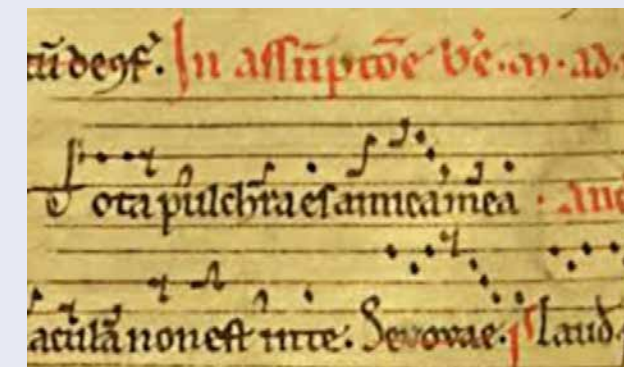 In assūptōe bē. m. ad.
Tota pulchra es amica mea
aculā non est in te. Sevovae. ps laud.